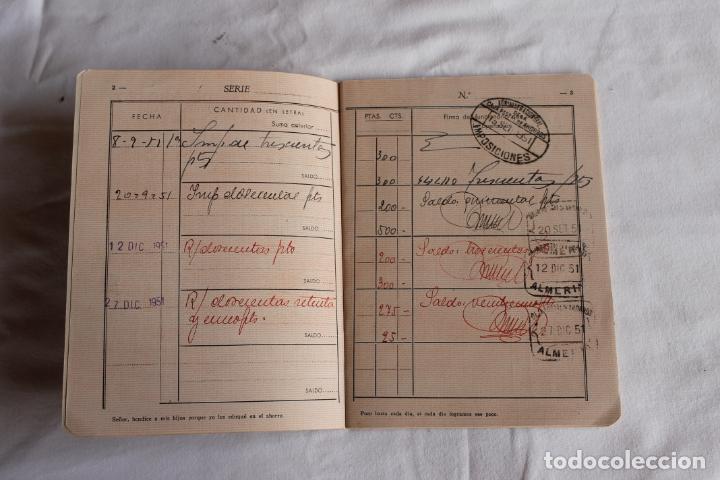 2 —
SERIE
FECHA
CANTIDAD (EN LETRA)
Suma anterior
8-9-51
Imp de trescientas
pts
SALDO
20-9-51
Imp doscientas pts
SALDO
12 DIC 1951
R/ doscientas pts
SALDO
27 DIC 1951
R/ doscientas setenta
y cinco pts.
SALDO
SALDO
Señor, bendice a mis hijos porque yo los eduqué en el ahorro.
N.º
— 3
PTAS. CTS.
Firma
IMPOSICIONES
300
300
SALDO Trescientas pts
200 -
Saldo: quinientas pts
500 -
20 SET 51
200 -
Saldo: trescientas
300 -
12 DIC 51
ALMERIA
275 -
Saldo: veinticinco pts
25 -
27 DIC 51
ALMERIA
Poco basta cada día, si cada día logramos ese poco.
todocoleccion.net